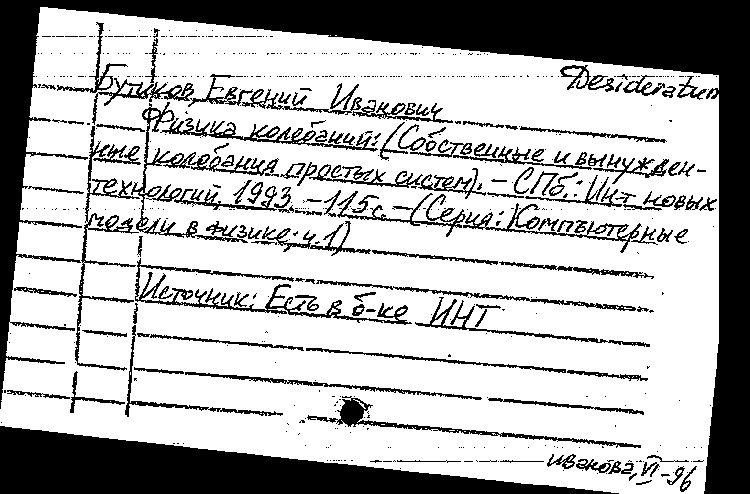 Desideratum
Бутиков, Евгений Иванович
Физика колебаний: (Собственные и вынужден-
ные колебания простых систем). – СПб.: Ин-т новых
технологий, 1993. – 115с. – (Серия: Компьютерные
модели в физике; ч.1)
Источник: Есть в б-ке ИНТ
Иванова, VI-96